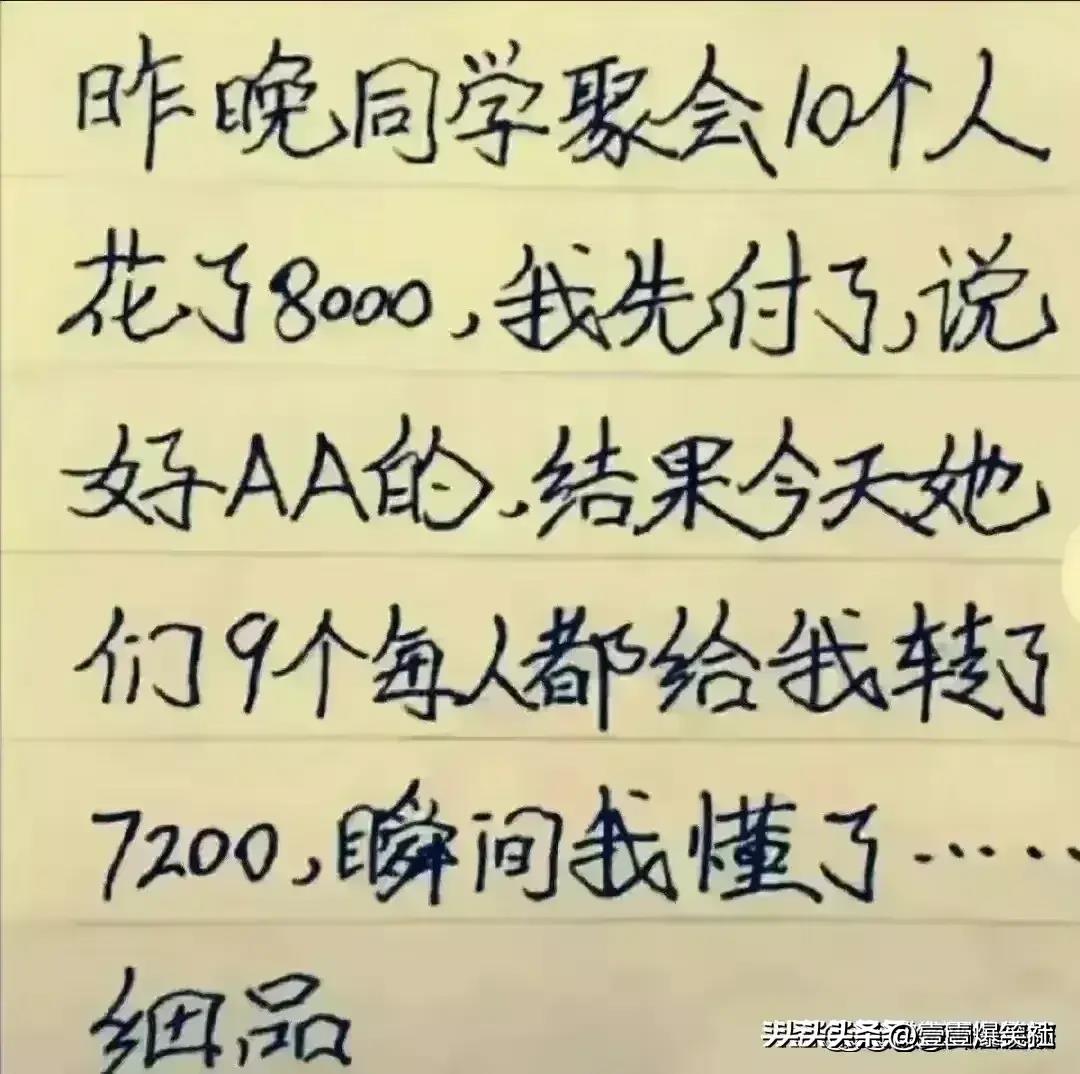 昨晚同学聚会10个人
花了8000,我先付了,说
好AA的,结果今天她
们9个每人都给我转了
7200,瞬间我懂了……
细品
头头头条@壹壹爆笑